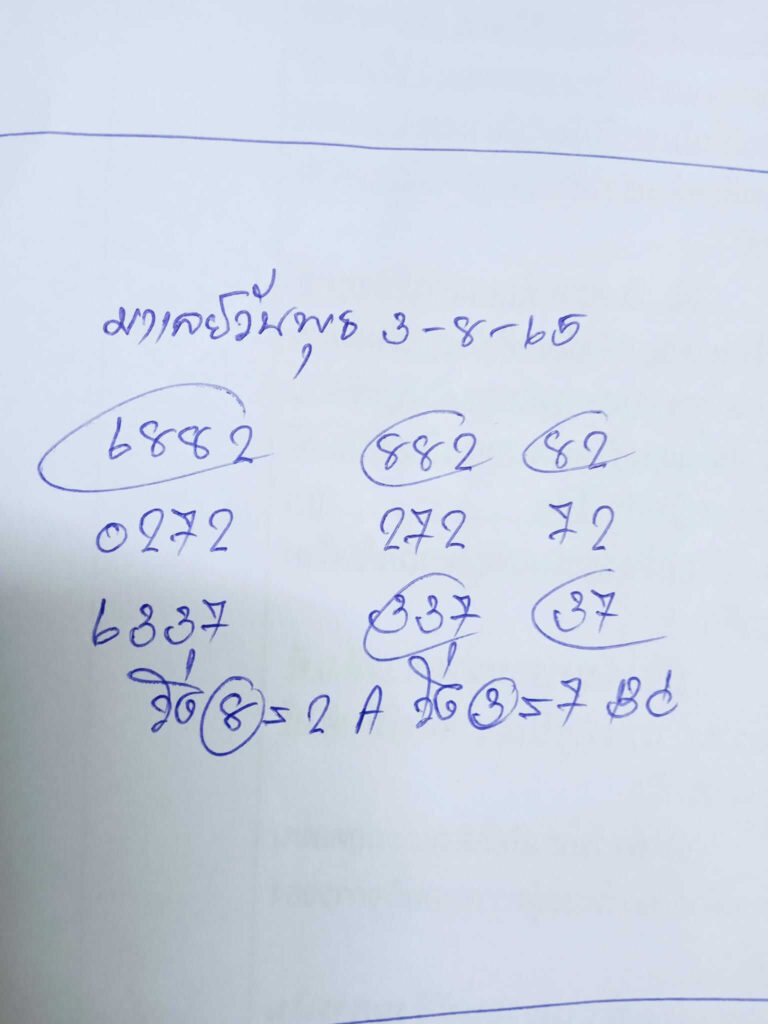 มาเลย์วันพุธ 3-8-65
6882 882 82
0272 272 72
6337 337 37
วิ่ง 8 = 2 A วิ่ง 3 = 7